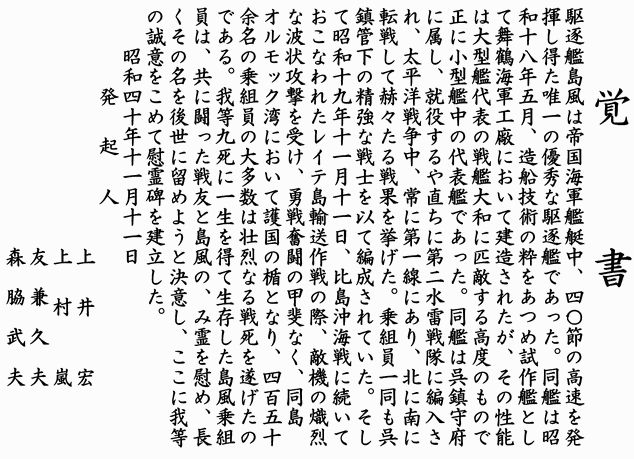 覚書
駆逐艦島風は帝国海軍艦艇中、四〇節の高速を発
揮し得た唯一の優秀な駆逐艦であった。同艦は昭
和十八年五月、造船技術の粋をあつめ試作艦とし
て舞鶴海軍工廠において建造されたが、その性能
は大型艦代表の戦艦大和に匹敵する高度のもので
正に小型艦中の代表艦であった。同艦は呉鎮守府
に属し、就役するや直ちに第二水雷戦隊に編入さ
れ、太平洋戦争中、常に第一線にあり、北に南に
転戦して赫々たる戦果を挙げた。乗組員一同も呉
鎮管下の精強な戦士を以て編成されていた。そし
て昭和十九年十一月十一日、比島沖海戦に続いて
おこなわれたレイテ島輸送作戦の際、敵機の熾烈
な波状攻撃を受け、勇戦奮闘の甲斐なく、同島
オルモック湾において護国の楯となり、四百五十
余名の乗組員の大多数は壮烈なる戦死を遂げたの
である。我等九死に一生を得て生存した島風乗組
員は、共に闘った戦友と島風の、み霊を慰め、長
くその名を後世に留めようと決意し、ここに我等
の誠意をこめて慰霊碑を建立した。
昭和四十年十一月十一日
発起人
上井宏
上村嵐
友兼久夫
森脇武夫